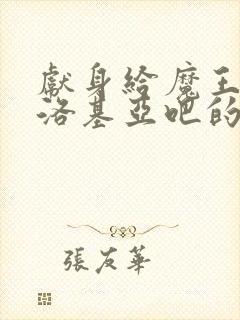 獻身給魔王
洛基亞吧的
張友華